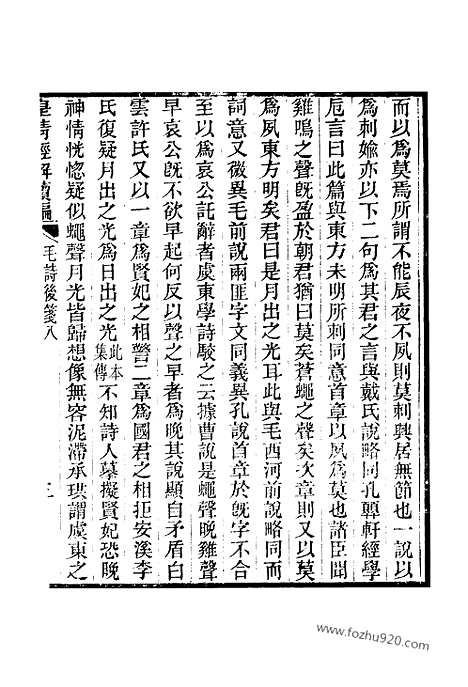 而以爲莫焉所謂不能辰夜不夙則莫刺興居無節也一說以
爲刺婾亦以下二句爲其君之言與戴氏說略同孔䡅軒經學
卮言曰此篇與東方未明所刺同意首章以夙爲莫也諸臣聞
雞鳴之聲旣盈於朝君猶曰莫矣蒼蠅之聲矣次章則又以莫
爲夙東方明矣君曰是月出之光耳此與毛西河前說略同而
詞意又微異毛前說兩匪字文同義異孔說首章於旣字不合
至以爲哀公託辭者虞東學詩駁之云據曹說是蠅聲晚雞聲
早哀公旣不欲早起何反以聲之早者爲晚其說顯自矛盾白
雲許氏又以一章爲賢妃之相警二章爲國君之相拒安溪李
氏復疑月出之光爲日出之光此本集傳不知詩人摹擬賢妃恐晚
神情恍惚疑似蠅聲月光皆歸想像無容泥滯承珙謂虞東之
皇淸經解續編
毛詩後箋八
www.fozhu920.com